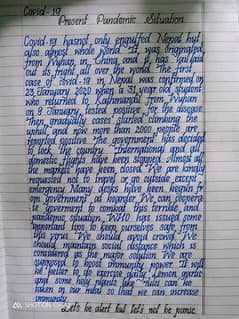 Covid-19
Present Pandemic Situation
Covid-19 has not only engulfed Nepal but
also almost whole world. It was originated
from Wuhan, in China, and it has laid
out its fright all over the world. The first
case of covid-19 in Nepal was confirmed on
23 January 2020 when a 31 year old student
who returned to Kathmandu from Wuhan
on 9 January tested positive for the disease
Then gradually cases started climbing the
uphill and now more than 2000 people are
reported positive. The government has decided
to lock the country. International and all
domestic flights have been stopped. Almost all
the markets have been closed. We are kindly
requested not to gather or go outside except
emergency. Many desks have been begun from
government at boarder. We can cooperate
government to combat this terrible and
pandemic situation. WHO has issued some
important tips to keep ourselves safe from
this virus. We should avoid crowd. We
should maintain social distance which is
considered as the major solution. We are
supposed to boost immunity power. It will
be better to do exercise daily. Lemon, garlic
and some holy plants like Tulsi can be
taken in our meal so that we can increase
immunity.
Let's be alert but let's not be panic.
SHOT ON